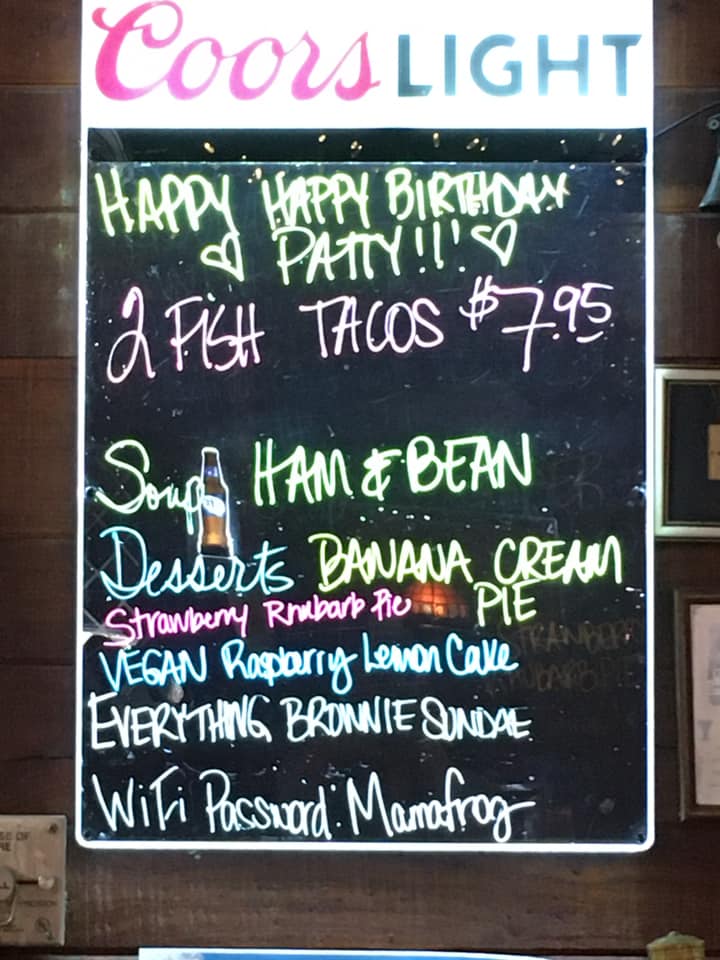 Coors LIGHT
HAPPY HAPPY BIRTHDAY
PATTY!!!
2 FISH TACOS $7.95
Soup HAM & BEAN
Desserts BANANA CREAM
PIE
Strawberry Rhubarb Pie
VEGAN Raspberry Lemon Cake
EVERYTHING BROWNIE SUNDAE
WiFi Password: Mamafrog